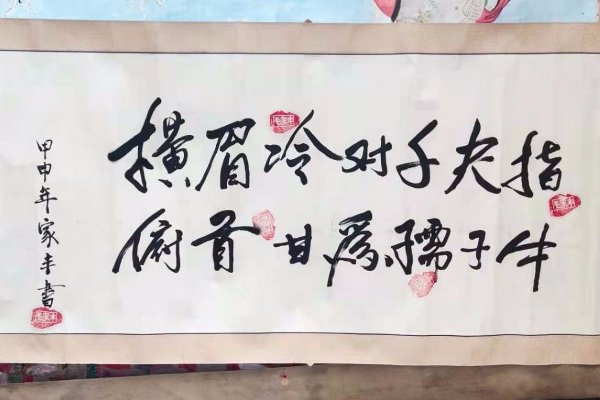 横眉冷对千夫指
俯首甘為孺子牛
甲申年家丰書